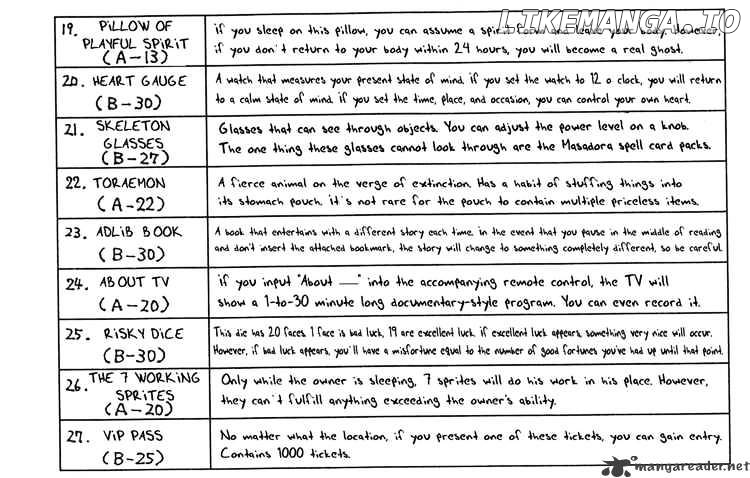 LIKEMANGA.IO
19. PILLOW OF
PLAYFUL SPIRIT
(A-13)
if you sleep on this pillow, you can assume a spirit form and leave your body. However,
if you don't return to your body within 24 hours, you will become a real ghost.
20. HEART GAUGE
(B-30)
A watch that measures your present state of mind. if you set the watch to 12 o clock, you will return
to a calm state of mind. if you set the time, place, and occasion, you can control your own heart.
21. SKELETON
GLASSES
(B-27)
Glasses that can see through objects. You can adjust the power level on a knob.
The one thing these glasses cannot look through are the Masadora spell card packs.
22. TORAEMON
(A-22)
A fierce animal on the verge of extinction. Has a habit of stuffing things into
its stomach pouch. it's not rare for the pouch to contain multiple priceless items.
23. ADLIB BOOK
(B-30)
A book that entertains with a different story each time. in the event that you pause in the middle of reading
and don't insert the attached bookmark, the story will change to something completely different, so be careful.
24. ABOUT TV
(A-20)
if you input "About —" into the accompanying remote control, the TV will
show a 1-to-30 minute long documentary-style program. You can even record it.
25. RISKY DICE
(B-30)
This die has 20 faces. 1 face is bad luck, 19 are excellent luck. if excellent luck appears, something very nice will occur.
However, if bad luck appears, you'll have a misfortune equal to the number of good fortunes you've had up until that point.
26. THE 7 WORKING
SPRITES
(A-20)
Only while the owner is sleeping, 7 sprites will do his work in his place. However,
they can't fulfill anything exceeding the owner's ability.
27. ViP PASS
(B-25)
No matter what the location, if you present one of these tickets, you can gain entry.
Contains 1000 tickets.
mangareader.net